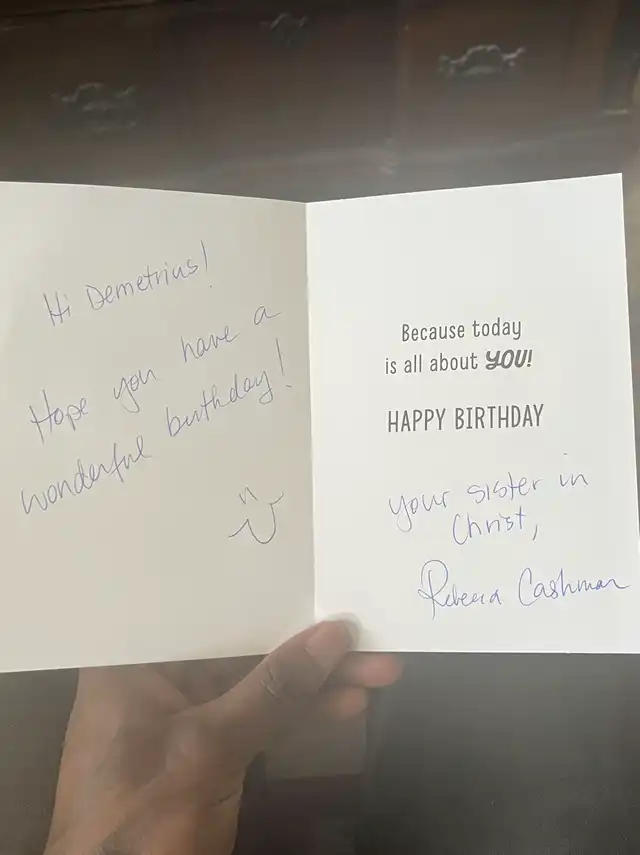 Hi Demetrius!
Hope you have a
wonderful birthday!
Because today
is all about YOU!
HAPPY BIRTHDAY
your sister in
Christ,
Rebecca Cashman